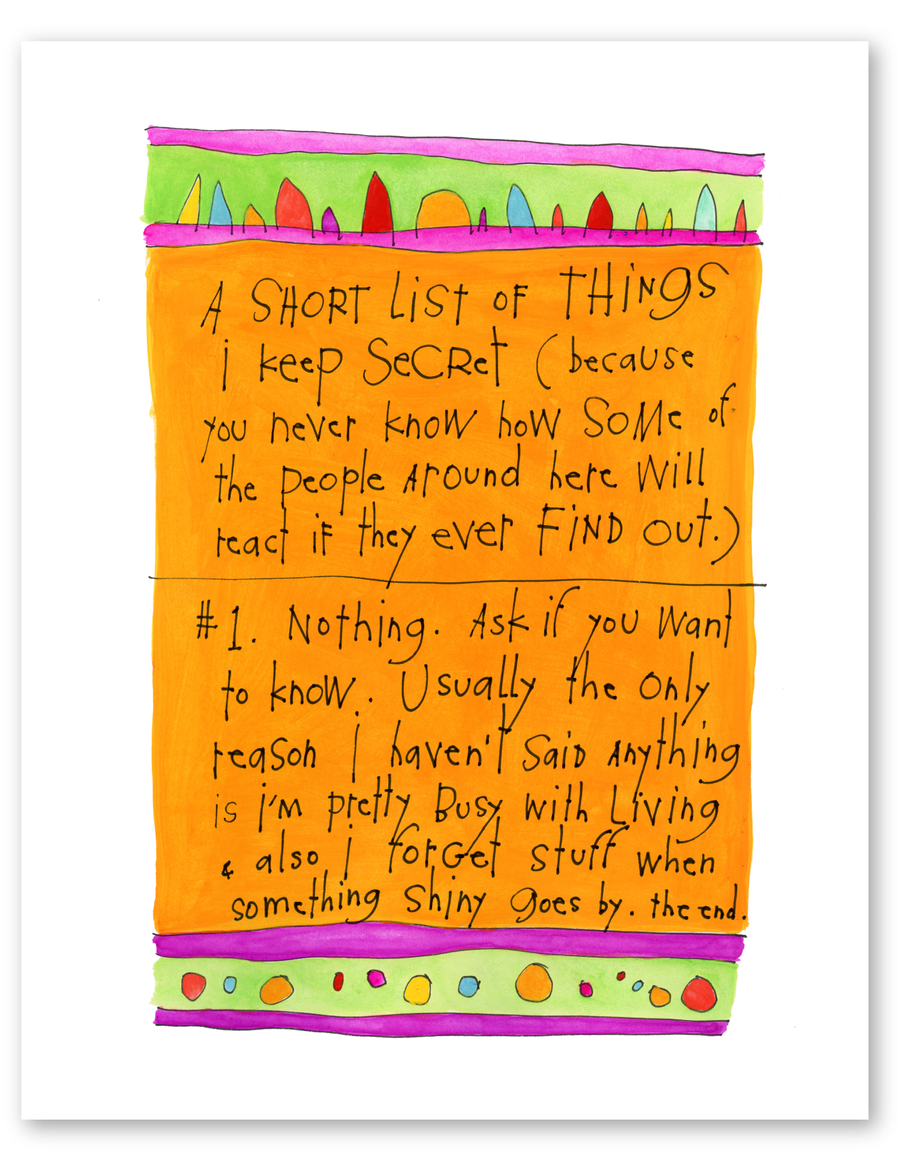 A SHORT LiSt OF THiNgS
i keep SeCRet (because
you never know how SoMe of
the people Around here Will
react iF they ever FiND out.)
#1. Nothing. Ask if you Want
to know. Usually the only
reason i haven't SaiD Anything
is i'm pretty Busy with Living
& also i forGet stuff when
something shiny goes by. the end.